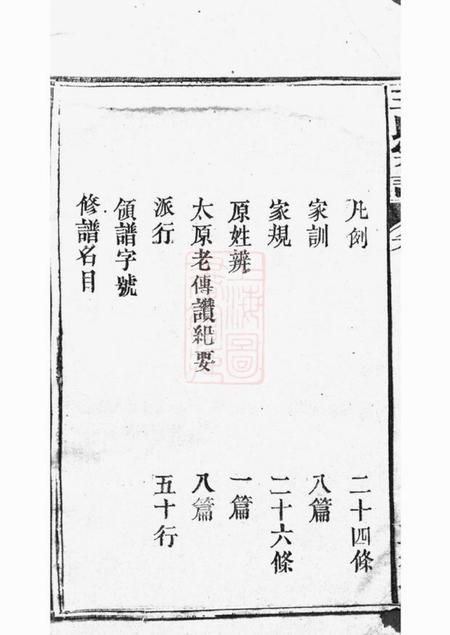 凡例 二十四條
家訓 八篇
家規 二十六條
原姓辨 一篇
太原老傳讚紀要 八篇
派行 五十行
領譜字號
修譜名目